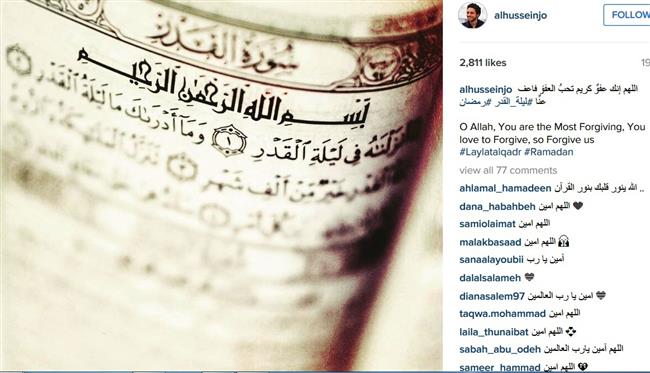 سُورَةُ القَدْرِ
بِسْمِ اللَّهِ الرَّحْمَنِ الرَّحِيمِ
فِي لَيْلَةِ الْقَدْرِ ١ وَمَا أَدْرَىٰكَ مَا لَيْلَةُ الْقَدْرِ
خَيْرٌ مِّنْ أَلْفِ شَهْرٍ
alhusseinjo
FOLLOW
2,811 likes
19
alhusseinjo اللهم إنك عفوٌ كريم تحبُّ العفوَ فاعف
عنّا #ليلة_القدر #رمضان
O Allah, You are the Most Forgiving, You
love to Forgive, so Forgive us
#Laylatalqadr #Ramadan
view all 77 comments
ahlamal_hamadeen الله ينور قلبك بنور القرآن ..
dana_hababeh اللهم امين
samiolaimat اللهم امين
malakbasaad اللهم امين
sanaalayoubii أمين يا رب
dalalsalameh
dianasalem97 امين يا رب العالمين
taqwa.mohammad اللهم امين
laila_thunaibat اللهم امين
sabah_abu_odeh اللهم أمين يارب العالمين
sameer_hammad اللهم امين